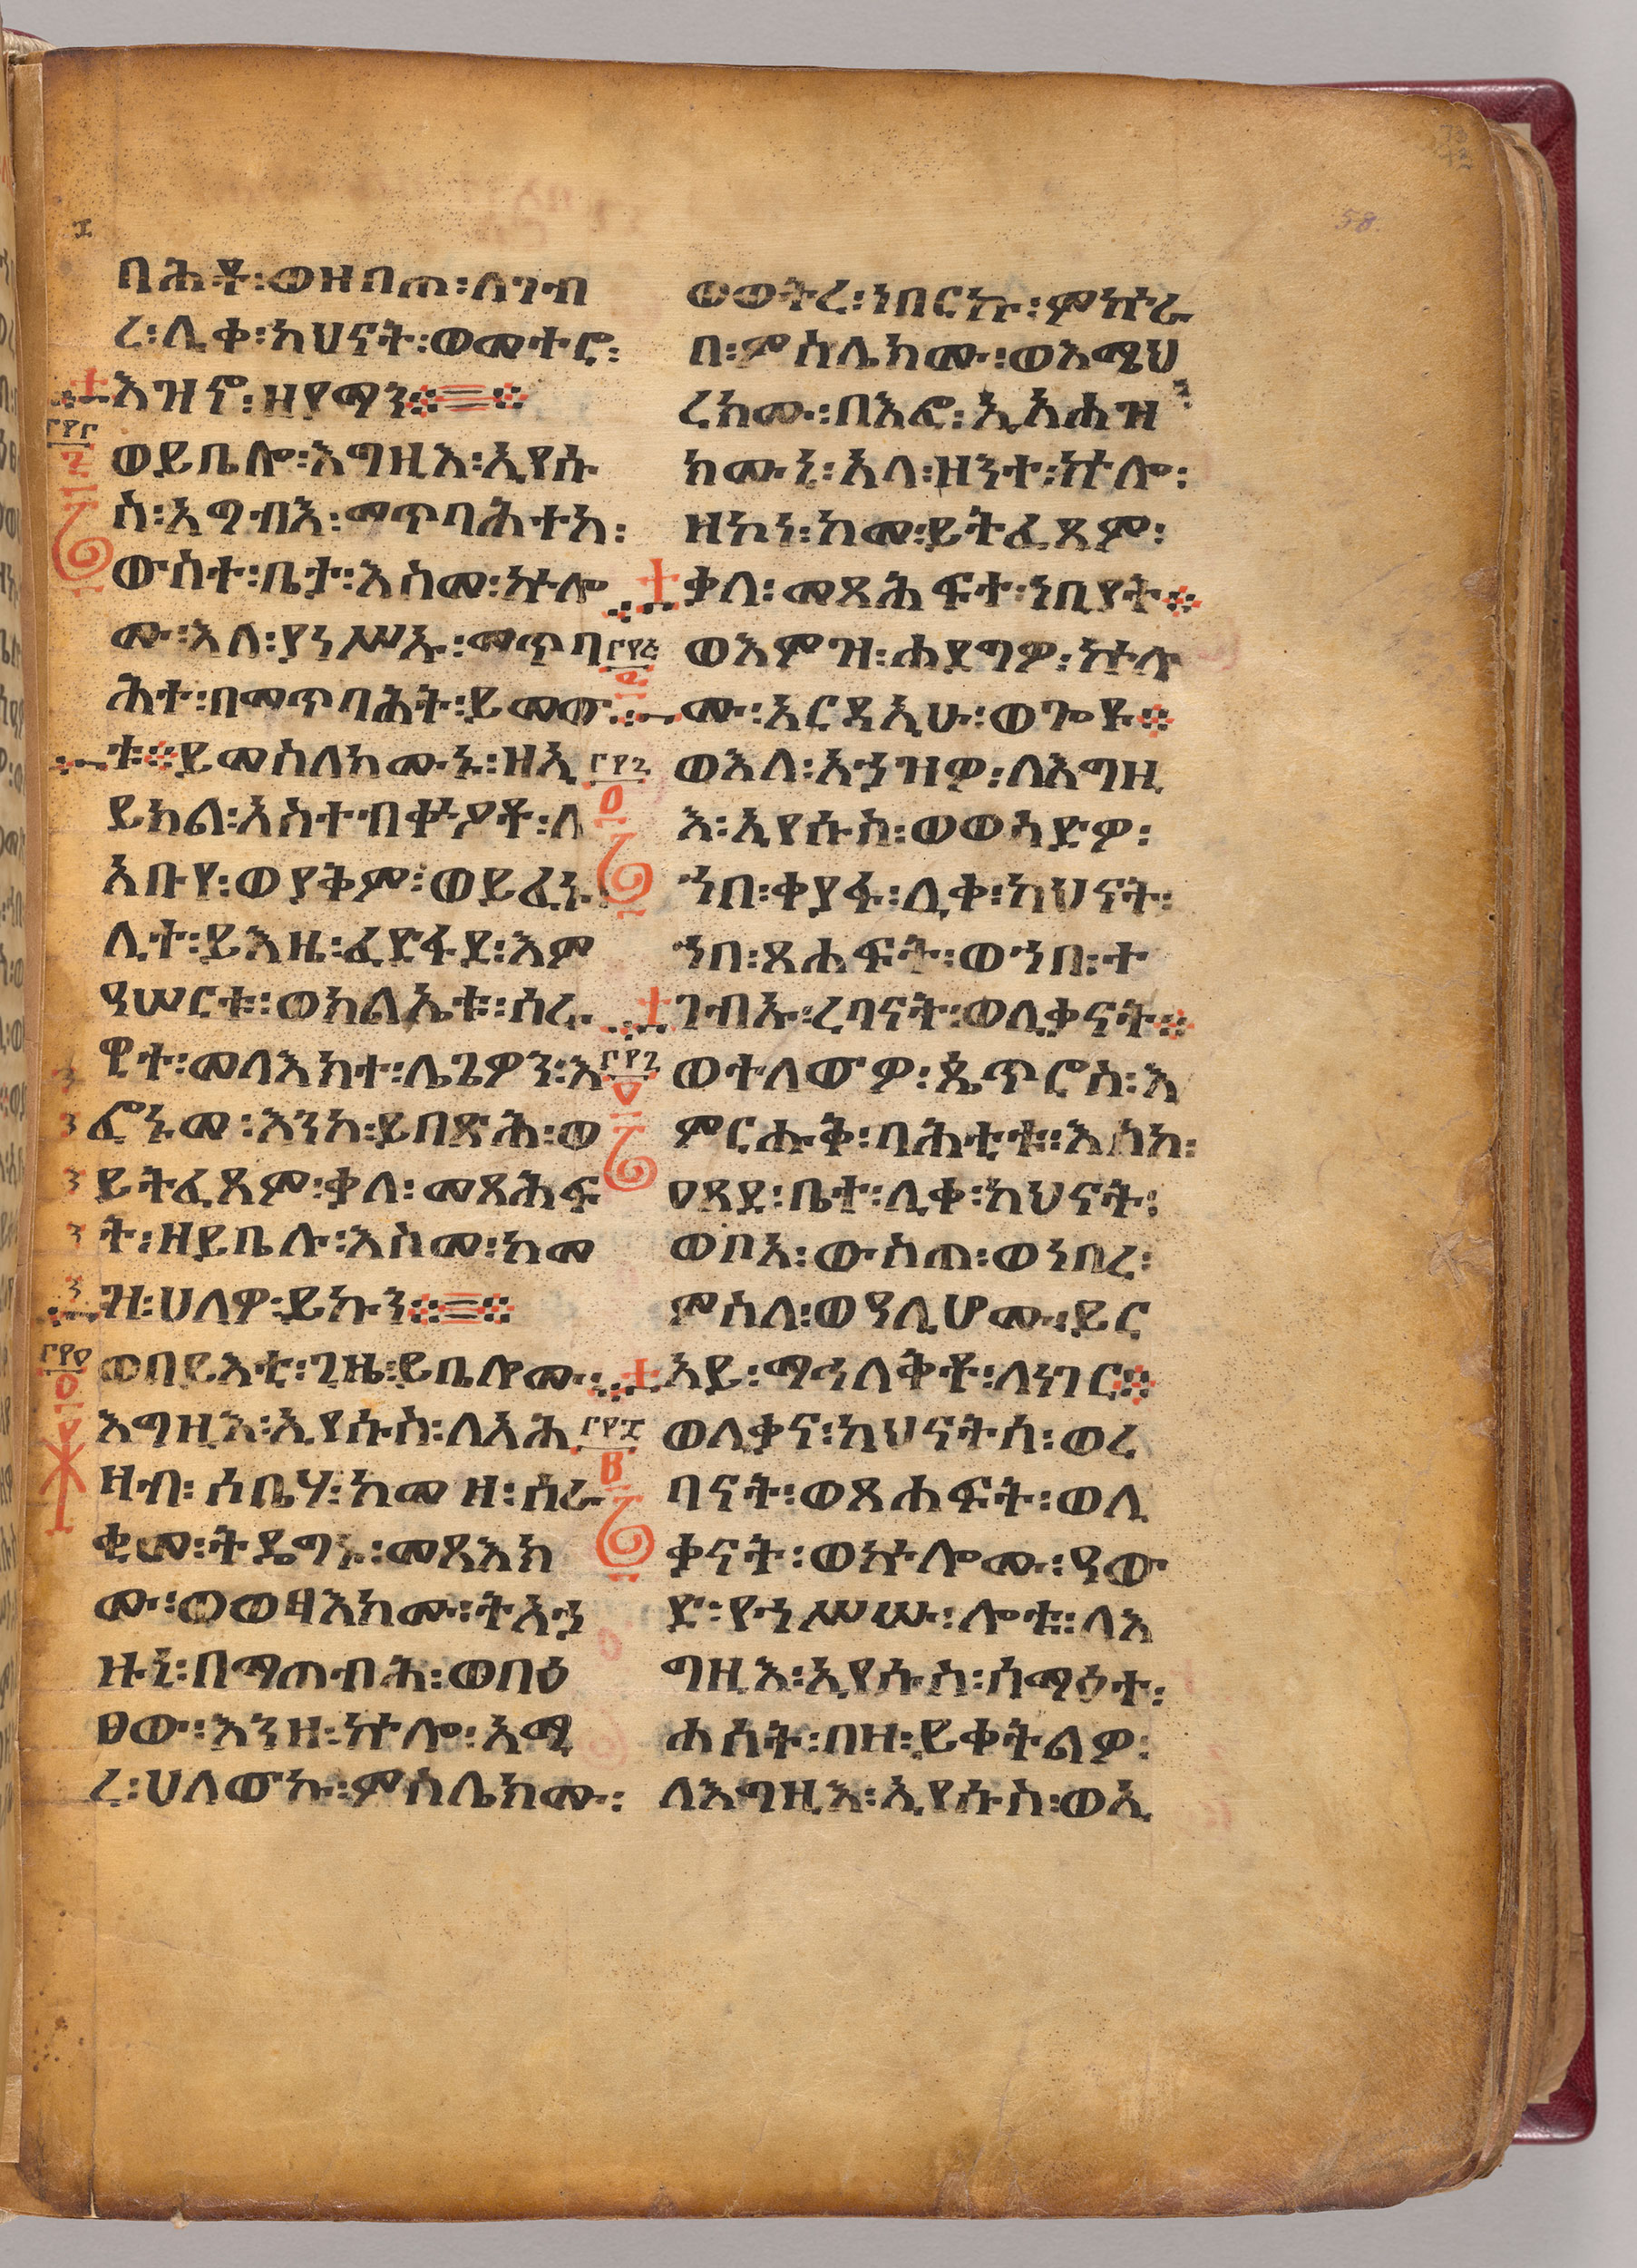 ባሕቶ፡ወዘበጠ፡ለገብ
ረ፡ሊቀ፡ካህናት፡ወመተሮ፡
እዝኖ፡ዘየማን፨
ወይቤሎ፡እግዚእ፡ኢየሱ
ስ፡አግብእ፡መጥባሕተከ፡
ውስተ፡ቤታ፡እስመ፡ኵሎ
ሙ፡እለ፡ያነሥኡ፡መጥባ
ሕተ፡በመጥባሕት፡ይመው
ቱ፨ይመስለከሙኑ፡ዘኢ
ይክል፡አስተብቍዖቶ፡ለ
አቡየ፡ወያቅም፡ወይፈኑ
ሊተ፡ይእዜ፡ፈድፋደ፡እም
ዓሠርቱ፡ወክልኤቱ፡ሰራ
ዊተ፡መላእክተ፡ሌጌዎን፡እ
ፎኑመ፡እንከ፡ይበጽሕ፡ወ
ይትፈጸም፡ቃለ፡መጻሕፍ
ት፡ዘይቤሉ፡እስመ፡ከመ
ዝ፡ሀለዎ፡ይኩን፨
ወበይእቲ፡ጊዜ፡ይቤሎሙ፡
እግዚእ፡ኢየሱስ፡ለአሕ
ዛብ፡ሰቤሃ፡ከመ ዘ፡ሰራ
ቂመ፡ትዴግኑ፡መጻእክ
ሙ፡ወወፃእክሙ፡ትአኃ
ዙኒ፡በማጠብሕ፡ወበዕ
ፀው፡እንዘ፡ኵሎ፡አሚ
ረ፡ሀለውኩ፡ምስሌክሙ፡
ወወትረ፡ነበርኩ፡ምኵራ
በ፡ምስሌክሙ፡ወእሜህ
ረክሙ፡በእፎ፡ኢአሐዝ
ክሙኒ፡አላ፡ዝንተ፡ኵሎ፡
ዘኮነ፡ከመ፡ይትፈጸም፡
ቃለ፡መጻሕፍተ፡ነቢያት፨
ወእምዝ፡ሐደግዎ፡ኵሉ
ሙ፡አርዳኢሁ፡ወጐዩ፨
ወእለ፡አኃዝዎ፡ለእግዚ
እ፡ኢየሱስ፡ወወሓድዎ፡
ኀበ፡ቀያፋ፡ሊቀ፡ካህናት፡
ኀበ፡ጸሐፍት፡ወኀበ፡ተ
ገብኡ፡ረባናት፡ወሊቃናት፨
ወተለውዎ፡ጴጥሮስ፡እ
ምርሑቅ፡ባሕቲቱ፡እስከ፡
ዐጸደ፡ቤተ፡ሊቀ፡ካህናት፡
ወቦአ፡ውስጠ፡ወነበረ፡
ምስለ፡ወዓሊሆሙ፡ይር
አይ፡ማኅለቅቶ፡ለነገር፨
ወሊቃና፡ካህናትሰ፡ወረ
ባናት፡ወጸሐፍት፡ወሊ
ቃናት፡ወኵሎሙ፡ዓው
ድ፡የኀሥሡ፡ሎቱ፡ላእ
ግዚእ፡ኢየሱስ፡ሰማዕተ፡
ሐሰት፡በዘ፡ይቀትልዎ፡
ለእግዚእ፡ኢየሱስ፡ወኢ